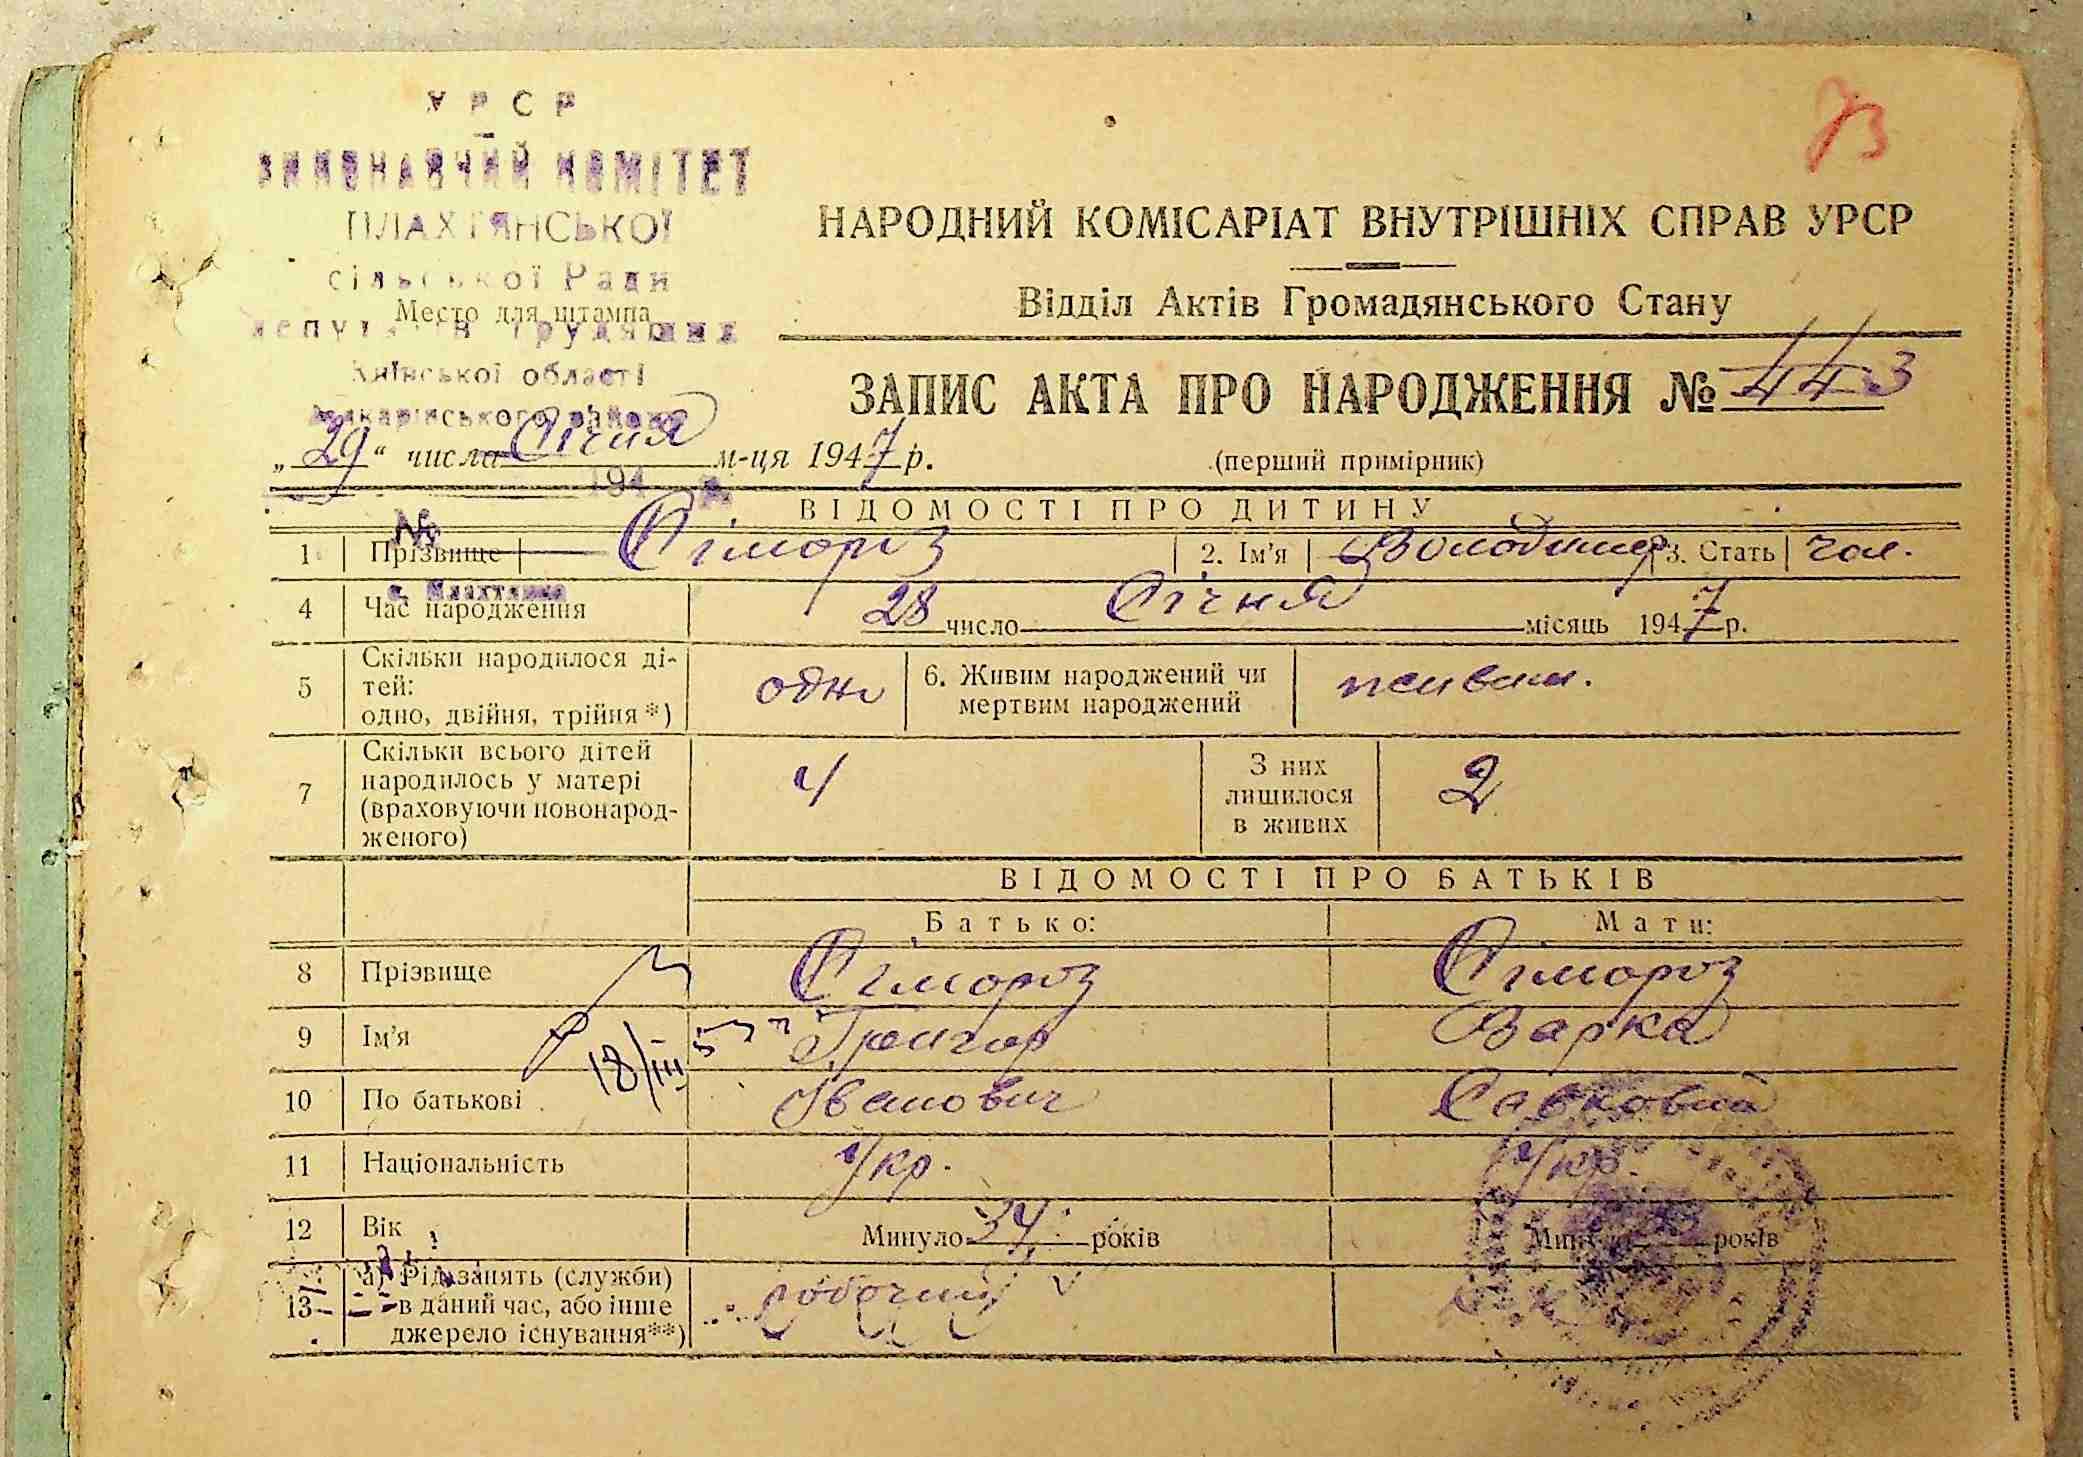 УРСР
ВИКОНАВЧИЙ КОМІТЕТ
ПЛАХТЯНСЬКОЇ
сільської Ради
Место для штампа
депутатів трудящих
Київської області
Макарівського району
194 р.
№
с. Плахтянка
73
НАРОДНИЙ КОМІСАРІАТ ВНУТРІШНІХ СПРАВ УРСР
Відділ Актів Громадянського Стану
ЗАПИС АКТА ПРО НАРОДЖЕННЯ № 3
„29“ числа Січня м-ця 1947 р.
(перший примірник)
ВІДОМОСТІ ПРО ДИТИНУ
1 Прізвище Сімороз 2. Ім’я Володимир 3. Стать чол.
4 Час народження 28 число Січня місяць 1947 р.
5 Скільки народилося ді-
тей:
одно, двійня, трійня*) одно
6. Живим народжений чи
мертвим народжений живим.
7 Скільки всього дітей
народилось у матері
(враховуючи новонарод-
женого) 4
З них
лишилося
в живих 2
ВІДОМОСТІ ПРО БАТЬКІВ
Батько: Мати:
8 Прізвище Сімороз Сімороз
9 Ім’я Григор Варка
18/III 53
10 По батькові Іванович Савковна
11 Національність Укр. Укр.
12 Вік Минуло 34 років Минуло років
13 а) Рід занять (служби)
в даний час, або інше
джерело існування**) робочий